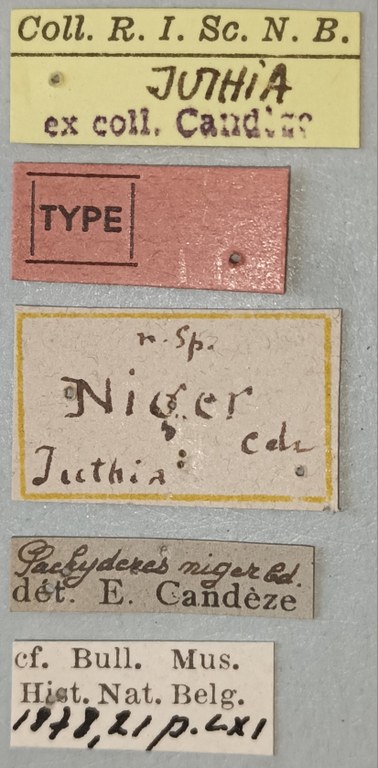 Coll. R. I. Sc. N. B.
JUTHIA
ex coll. Candèze
TYPE
n. Sp.
Niger
Cdz
Juthia
Pachyderes niger Cd.
dét. E. Candèze
cf. Bull. Mus.
Hist. Nat. Belg.
1878, 21 p. LXI